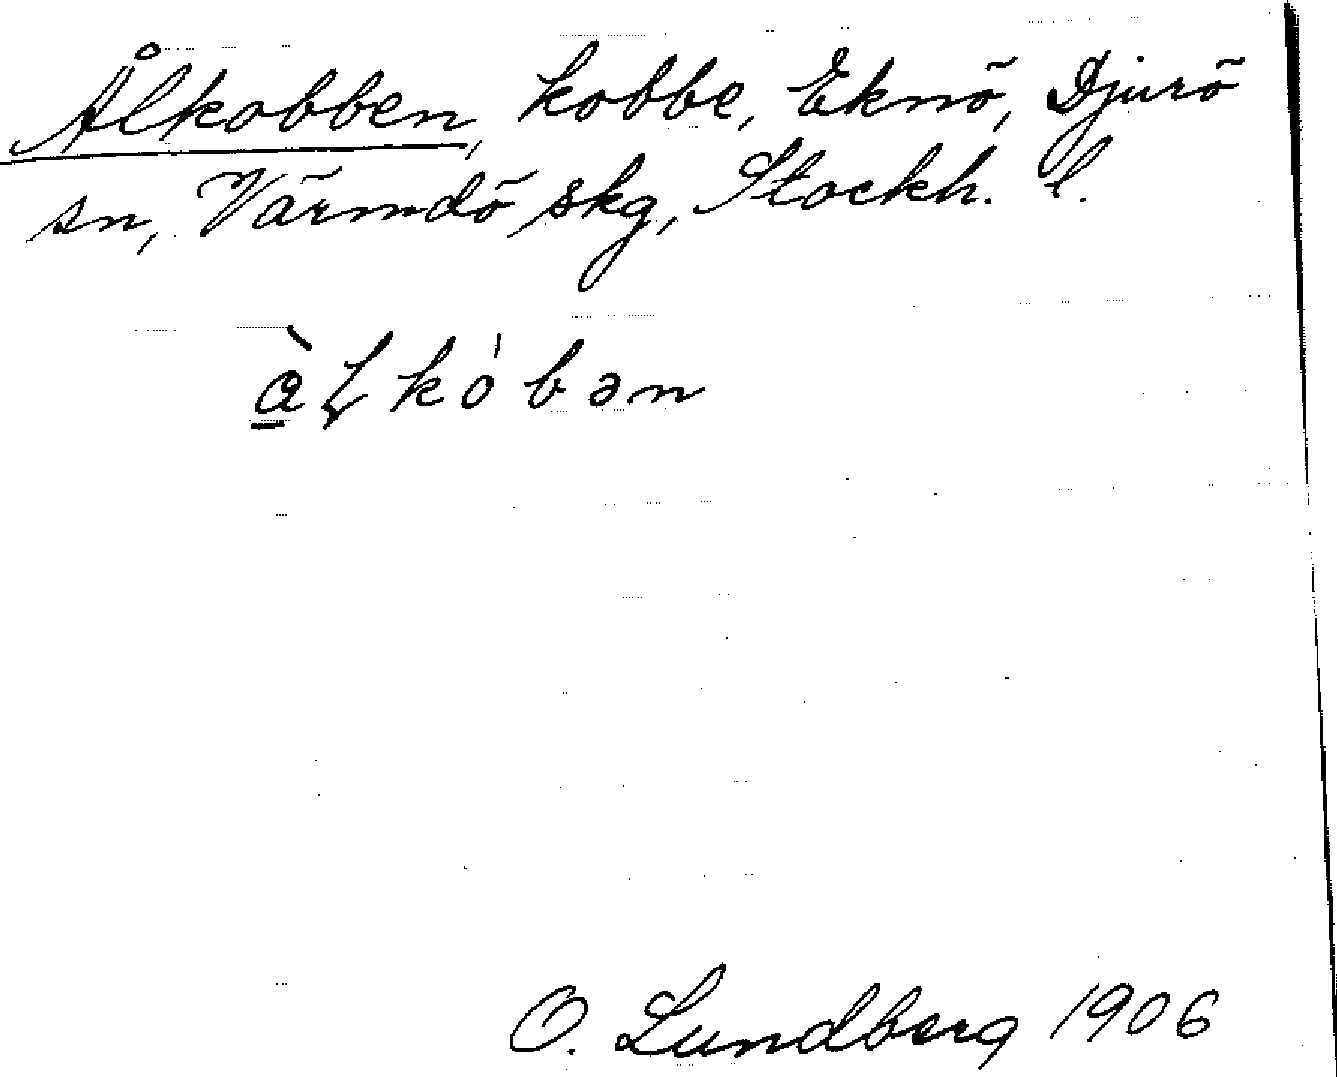 Ålkobben, kobbe, Eknö, Djurö
sn, Värmdö skg, Stockh. l.
O. Lundberg 1906